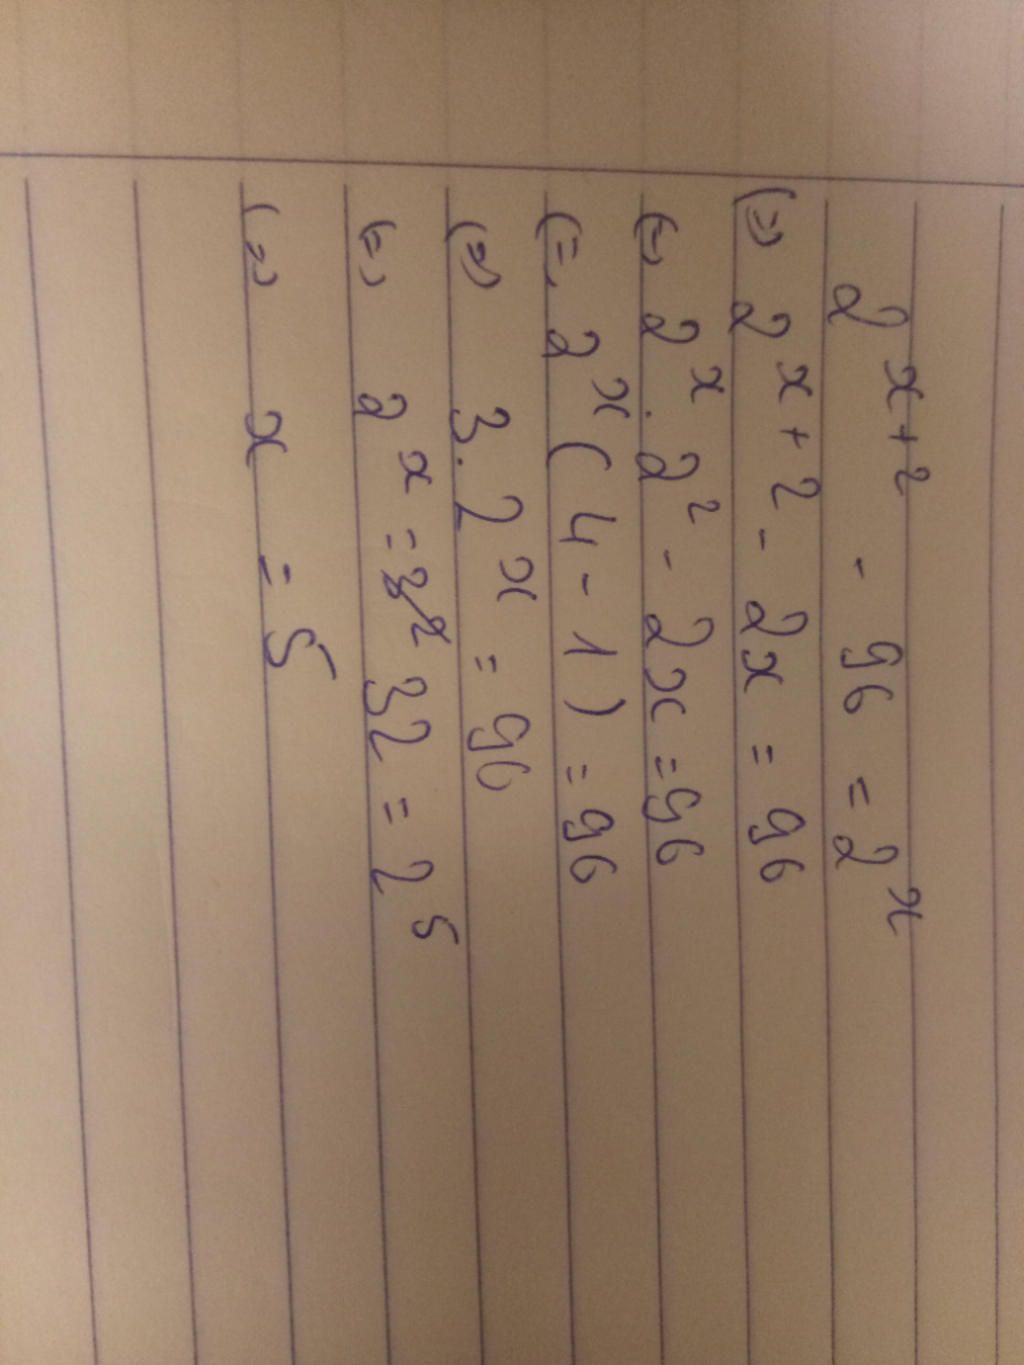 2^{x+2} - 96 = 2^x
(=) 2^{x+2} - 2x = 96
(=) 2^x . 2^2 - 2x = 96
(=) 2^x (4 - 1) = 96
(=) 3 . 2^x = 96
(=) 2^x = 32 = 2^5
(=) x = 5